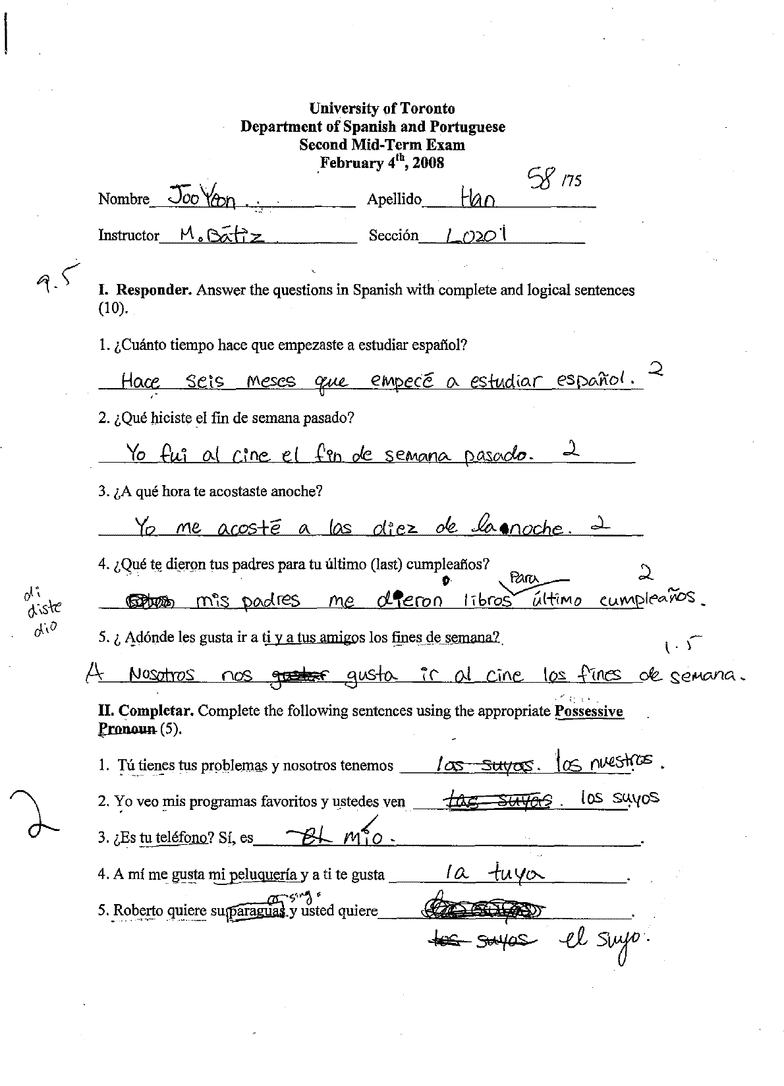 University of Toronto
Department of Spanish and Portuguese
Second Mid-Term Exam
February 4th, 2008
58 /75
Nombre Joo Yeon Apellido Han
Instructor M. Bátiz Sección L0201
9.5
I. Responder. Answer the questions in Spanish with complete and logical sentences
(10).
1. ¿Cuánto tiempo hace que empezaste a estudiar español?
Hace seis meses que empecé a estudiar español. 2
2. ¿Qué hiciste el fin de semana pasado?
Yo fui al cine el fin de semana pasado. 2
3. ¿A qué hora te acostaste anoche?
Yo me acosté a las diez de la noche. 2
4. ¿Qué te dieron tus padres para tu último (last) cumpleaños?
Para 2
di
diste
dio
mis padres me dieron libros último cumpleaños.
5. ¿ Adónde les gusta ir a ti y a tus amigos los fines de semana?
1.5
A Nosotros nos gusta ir al cine los fines de semana.
II. Completar. Complete the following sentences using the appropriate Possessive
Pronoun (5).
1. Tú tienes tus problemas y nosotros tenemos los suyos. los nuestros.
2. Yo veo mis programas favoritos y ustedes ven las suyas. los suyos
2
3. ¿Es tu teléfono? Sí, es El mío.
4. A mí me gusta mi peluquería y a ti te gusta la tuya.
sing.
5. Roberto quiere su paraguas y usted quiere
los suyos el suyo.